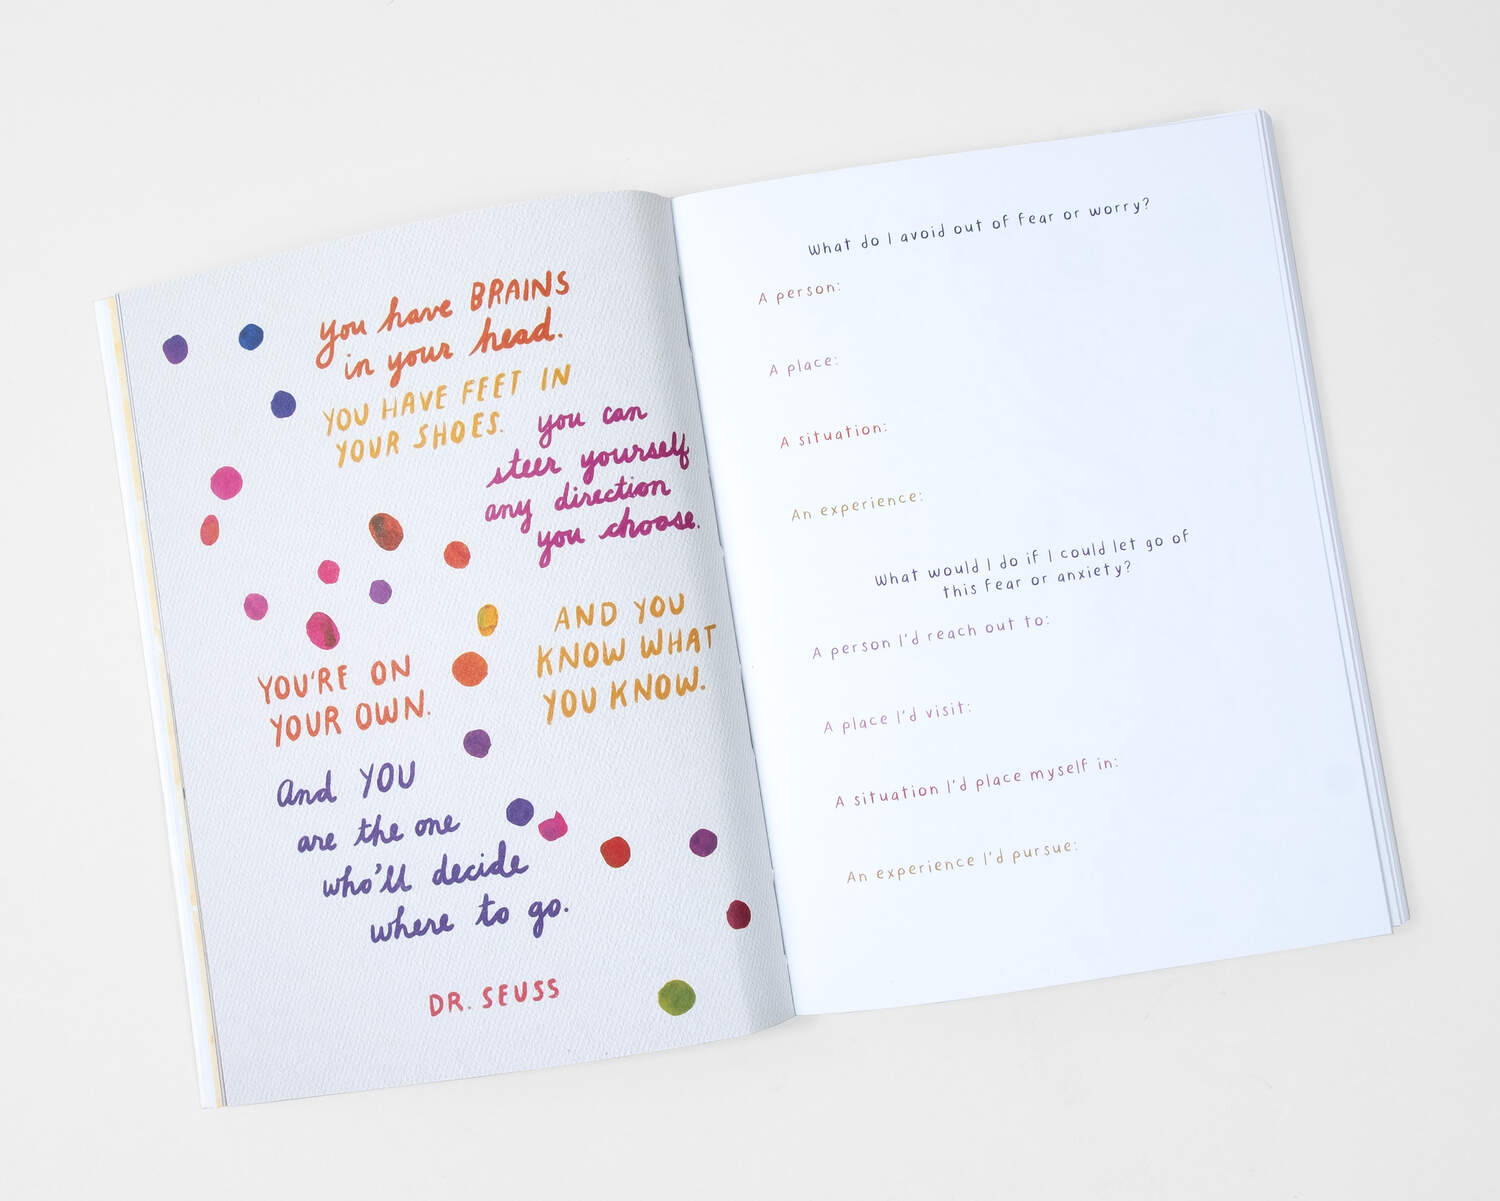 you have BRAINS
in your head.
YOU HAVE FEET IN
YOUR SHOES.
you can
steer yourself
any direction
you choose.
YOU'RE ON
YOUR OWN.
AND YOU
KNOW WHAT
YOU KNOW.
And YOU
are the one
who'll decide
where to go.
DR. SEUSS
What do I avoid out of fear or worry?
A person:
A place:
A situation:
An experience:
What would I do if I could let go of
this fear or anxiety?
A person I'd reach out to:
A place I'd visit:
A situation I'd place myself in:
An experience I'd pursue: